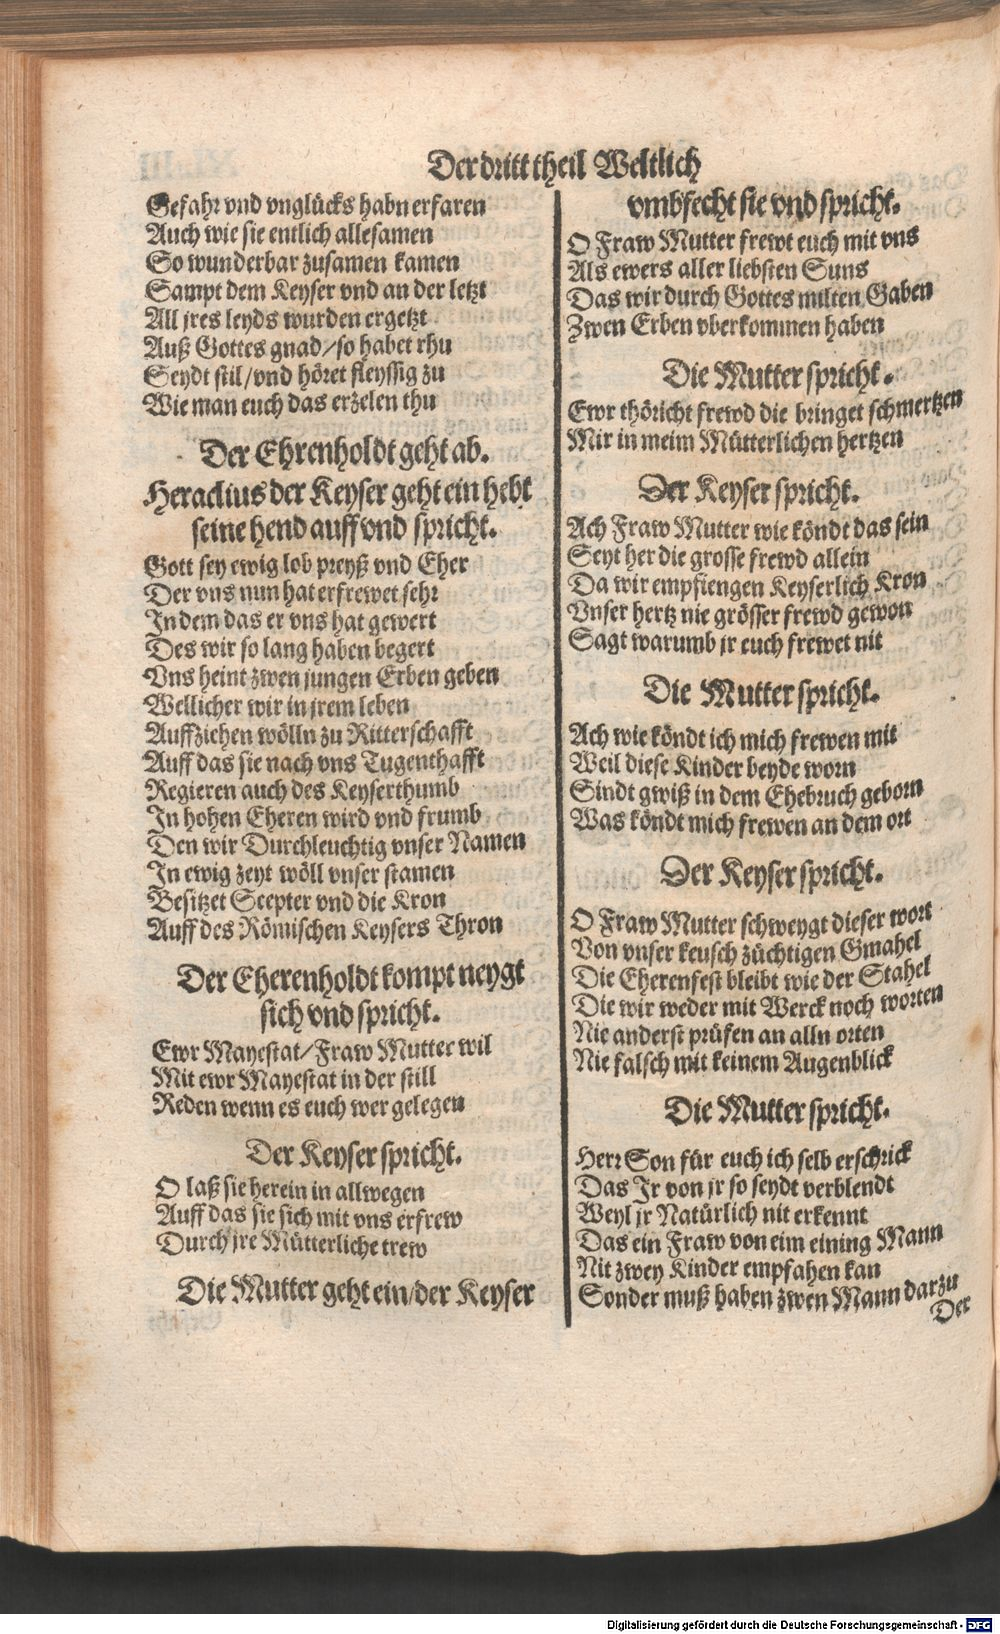 Der dritt theil Weltlich
Gefahr vnd vnglücks habn erfaren
Auch wie sie entlich allesamen
So wunderbar zusamen kamen
Sampt dem Keyser vnd an der letzt
All jres leyds wurden ergetzt
Auß Gottes gnad/so habet rhu
Seydt stil/vnd höret fleyssig zu
Wie man euch das erzelen thu
Der Ehrenholdt geht ab.
Heraclius der Keyser geht ein hebt
seine hend auff vnd spricht.
Gott sey ewig lob preyß vnd Eher
Der vns nun hat erfrewet sehr
In dem das er vns hat gewert
Des wir so lang haben begert
Vns heint zwen jungen Erben geben
Wellicher wir in jrem leben
Auffziehen wölln zu Ritterschafft
Auff das sie nach vns Tugenthafft
Regieren auch des Keyserthumb
In hohen Eheren wird vnd frumb
Den wir Durchleuchtig vnser Namen
In ewig zeyt wöll vnser stamen
Besitzet Scepter vnd die Kron
Auff des Römischen Keysers Thron
Der Eherenholdt kompt neygt
sich vnd spricht.
Ewr Mayestat/Fraw Mutter wil
Mit ewr Mayestat in der still
Reden wenn es euch wer gelegen
Der Keyser spricht.
O laß sie herein in allwegen
Auff das sie sich mit vns erfrew
Durch jre Mütterliche trew
Die Mutter geht ein/der Keyser
vmbfecht sie vnd spricht.
O Fraw Mutter frewt euch mit vns
Als ewers aller liebsten Suns
Das wir durch Gottes milten Gaben
Zwen Erben vberkommen haben
Die Mutter spricht.
Ewr thöricht frewd die bringet schmertzen
Mir in meim Mütterlichen hertzen
Der Keyser spricht.
Ach Fraw Mutter wie köndt das sein
Seyt her die grosse frewd allein
Da wir empfiengen Keyserlich Kron
Vnser hertz nie grösser frewd gewon
Sagt warumb jr euch frewet nit
Die Mutter spricht.
Ach wie köndt ich mich frewen mit
Weil diese Kinder beyde worn
Sindt gwiß in dem Ehebruch geborn
Was köndt mich frewen an dem ort
Der Keyser spricht.
O Fraw Mutter schweygt dieser wort
Von vnser keusch züchtigen Gmahel
Die Eherenfest bleibt wie der Stahel
Die wir weder mit Werck noch worten
Nie anderst prüfen an alln orten
Nie falsch mit keinem Augenblick
Die Mutter spricht.
Herr Son für euch ich selb erschrick
Das Jr von jr so seydt verblendt
Weyl jr Natürlich nit erkennt
Das ein Fraw von eim eining Mann
Nit zwey Kinder empfahen kan
Sonder muß haben zwen Mann darzu
Der
Digitalisierung gefördert durch die Deutsche Forschungsgemeinschaft - DFG